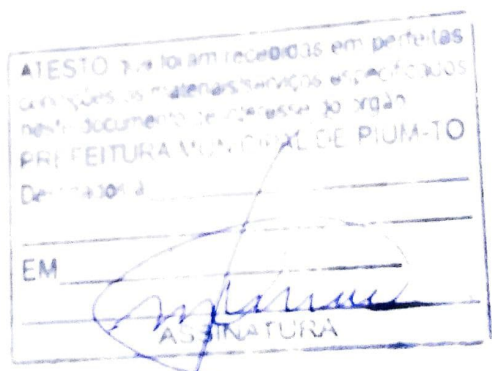 ATESTO que foram recebidas em perfeitas
condições os materiais/serviços especificados
neste documento de interesse do orgão
PREFEITURA MUNICIPAL DE PIUM-TO
Destinados á
EM
ASSINATURA